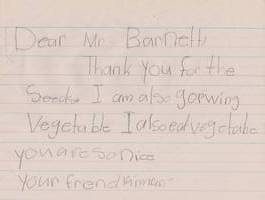 Dear Mr Barnett
Thank you for the
Seeds I am also gorwing
Vegetable I also eat vegetabe
you are so nice
your friend